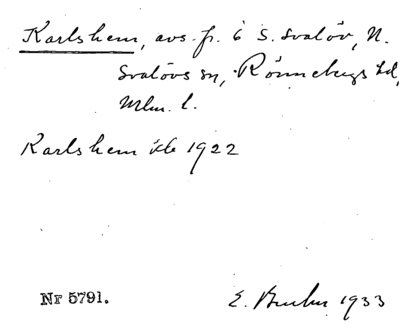 Karlshem, avs. fr. 6 S. Svalöv, N.
Svalövs sn, Rönnebergs hd,
Mlm. l.
Karlshem 1922
Nr 5791.
E. 1933